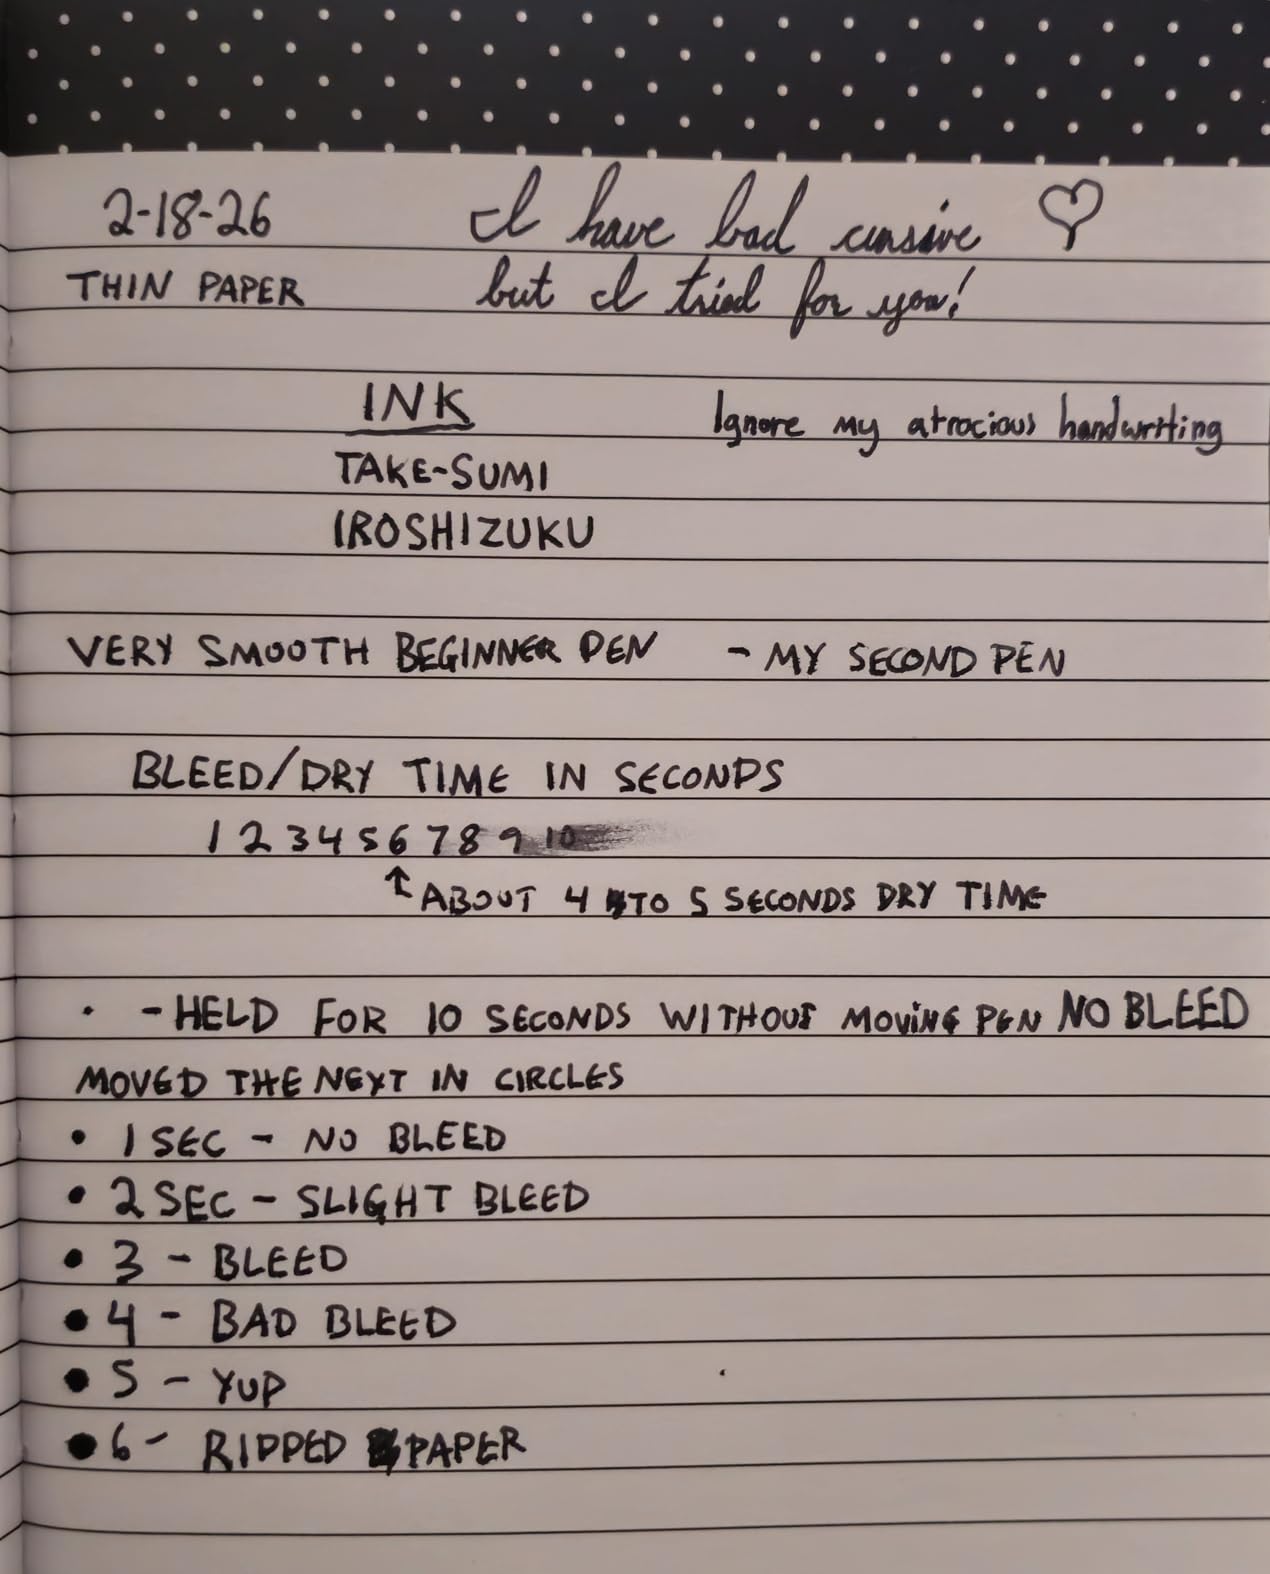 2-18-26
I have bad cursive
THIN PAPER
but I tried for you!
INK
Ignore my atrocious handwriting
TAKE-SUMI
IROSHIZUKU
VERY SMOOTH BEGINNER PEN - MY SECOND PEN
BLEED/DRY TIME IN SECONDS
1 2 3 4 5 6 7 8 9 10
↑ ABOUT 4 TO 5 SECONDS DRY TIME
· - HELD FOR 10 SECONDS WITHOUT MOVING PEN NO BLEED
MOVED THE NEXT IN CIRCLES
• 1 SEC - NO BLEED
• 2 SEC - SLIGHT BLEED
• 3 - BLEED
• 4 - BAD BLEED
• 5 - YUP
• 6 - RIPPED PAPER